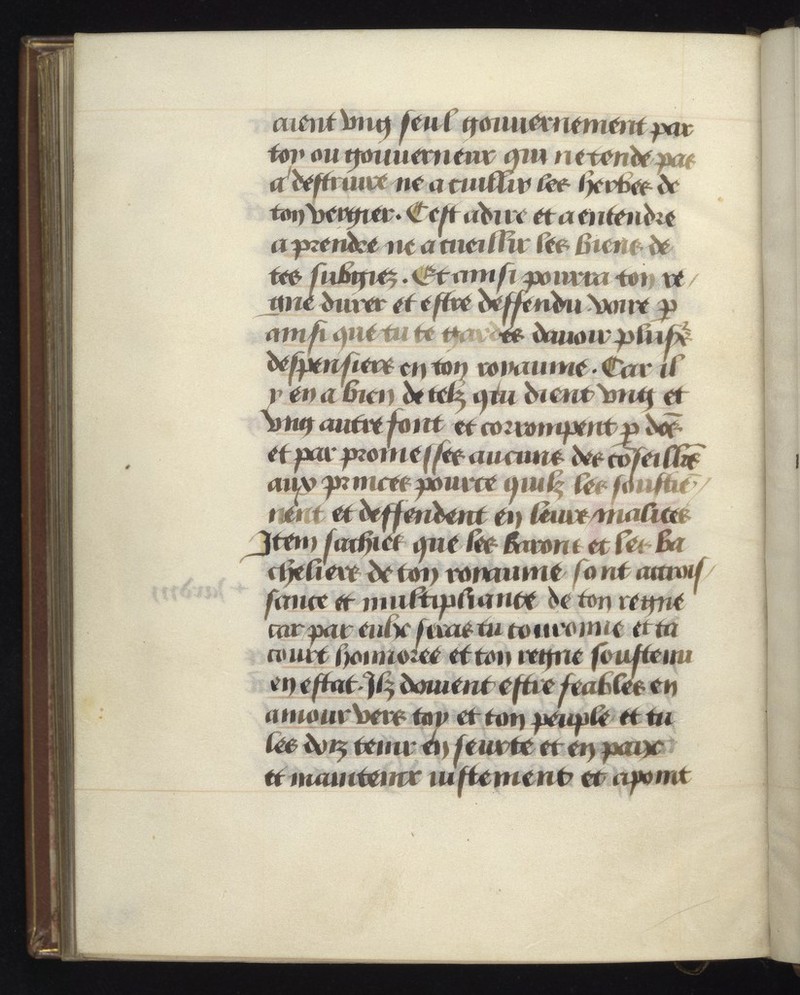 aient vng seul gouuernement par
toy ou gouuerneur qui ne tende pas
a destruire ne a cuillir les herbes de
ton vergier. Cest adire et a entendre
a prendre ne a cueillir les biens de
tes subgiez. Et ainsi pourra ton re/
gne durer et estre deffendu voire p̱
ainsi que tu te gardes dauoir plusẽ
despensiers en ton royaume. Car il
y en a bien de telz qui dient vng et
vng autre font et corrompent p̱ dõs
et par promesses aucuns des cõseillẽs
aux princes pource quilz les soustiẽ/
nent et deffendent en leurs malices
Item saches que les barons et les ba
cheliers de ton royaume sont accrois/
sance et multipliance de ton regne
car par eulx seras tu couronne et ta
court honnoree et ton regne soustenu
en estat. Ilz doiuent estre feables en
amour vers toy et ton peuple et tu
les doiz tenir en seurte et en paix
et maintenir iustement et apoint